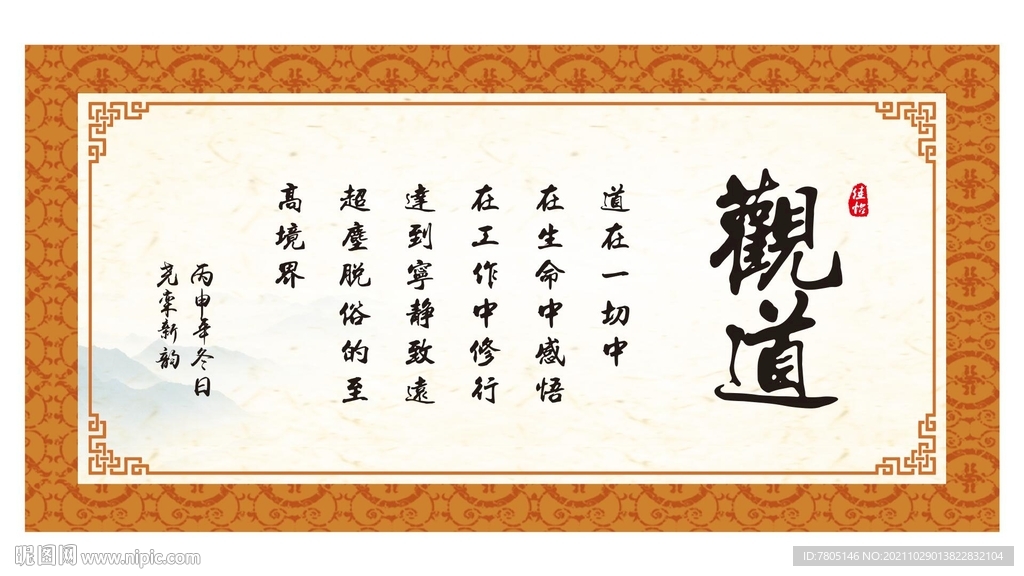 觀道
道在一切中
在生命中感悟
在工作中修行
達到寧静致遠
超塵脱俗的至
高境界
丙申年冬日
尧栾新韵
昵图网 www.nipic.com
ID:7805146 NO:20211029013822832104